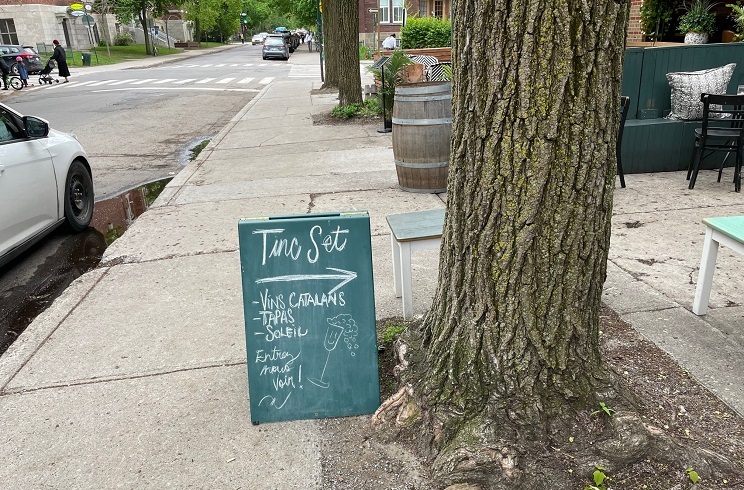 Tinc Set
- VINS CATALANS
- TAPAS
- SOLEIL
Entrez
nous
voir!